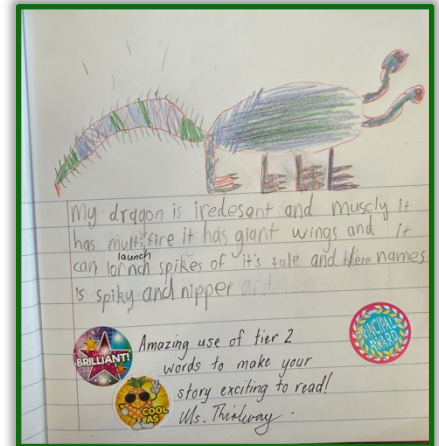 My dragon is iredesent and muscly it
has multi fire it has giant wings and it
launch
can lornch spikes of it's tale and there names
is spiky and nipper and
BRILLIANT!
Amazing use of tier 2
words to make your
story exciting to read!
COOL AS
PRINCIPAL AWARD